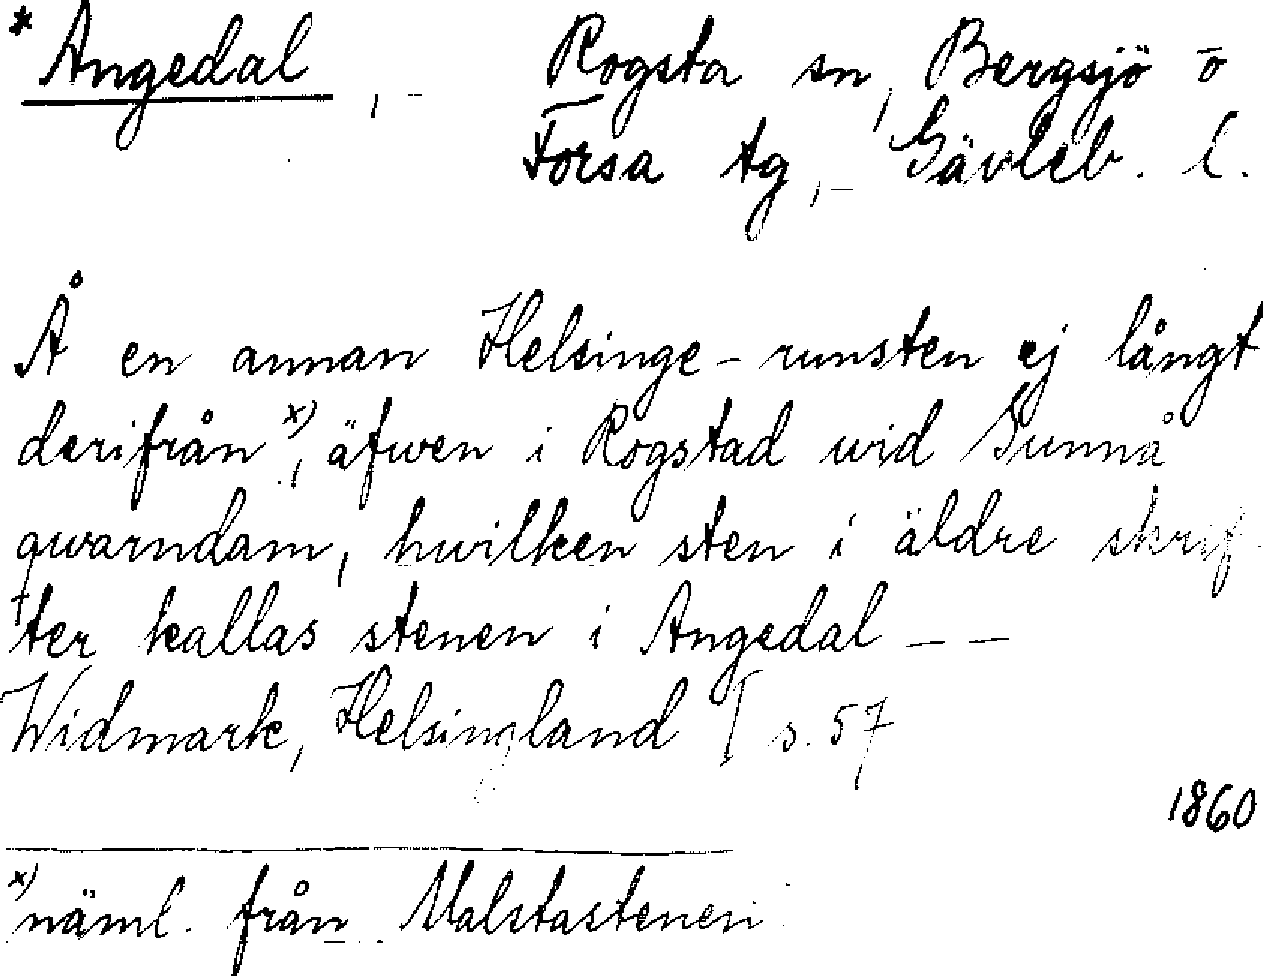 * Angedal, - Rogsta sn, Bergsjö o
Forsa tg, - Gävleb. l.
Å en annan Helsinge-runsten ej långt
derifrån x), äfwen i Rogstad wid Sunnå
qwarndam, hwilken sten i äldre skrif-
ter kallas stenen i Angedal - -
Widmark, Helsingland I s. 57
1860
x) näml. från Malstastenen